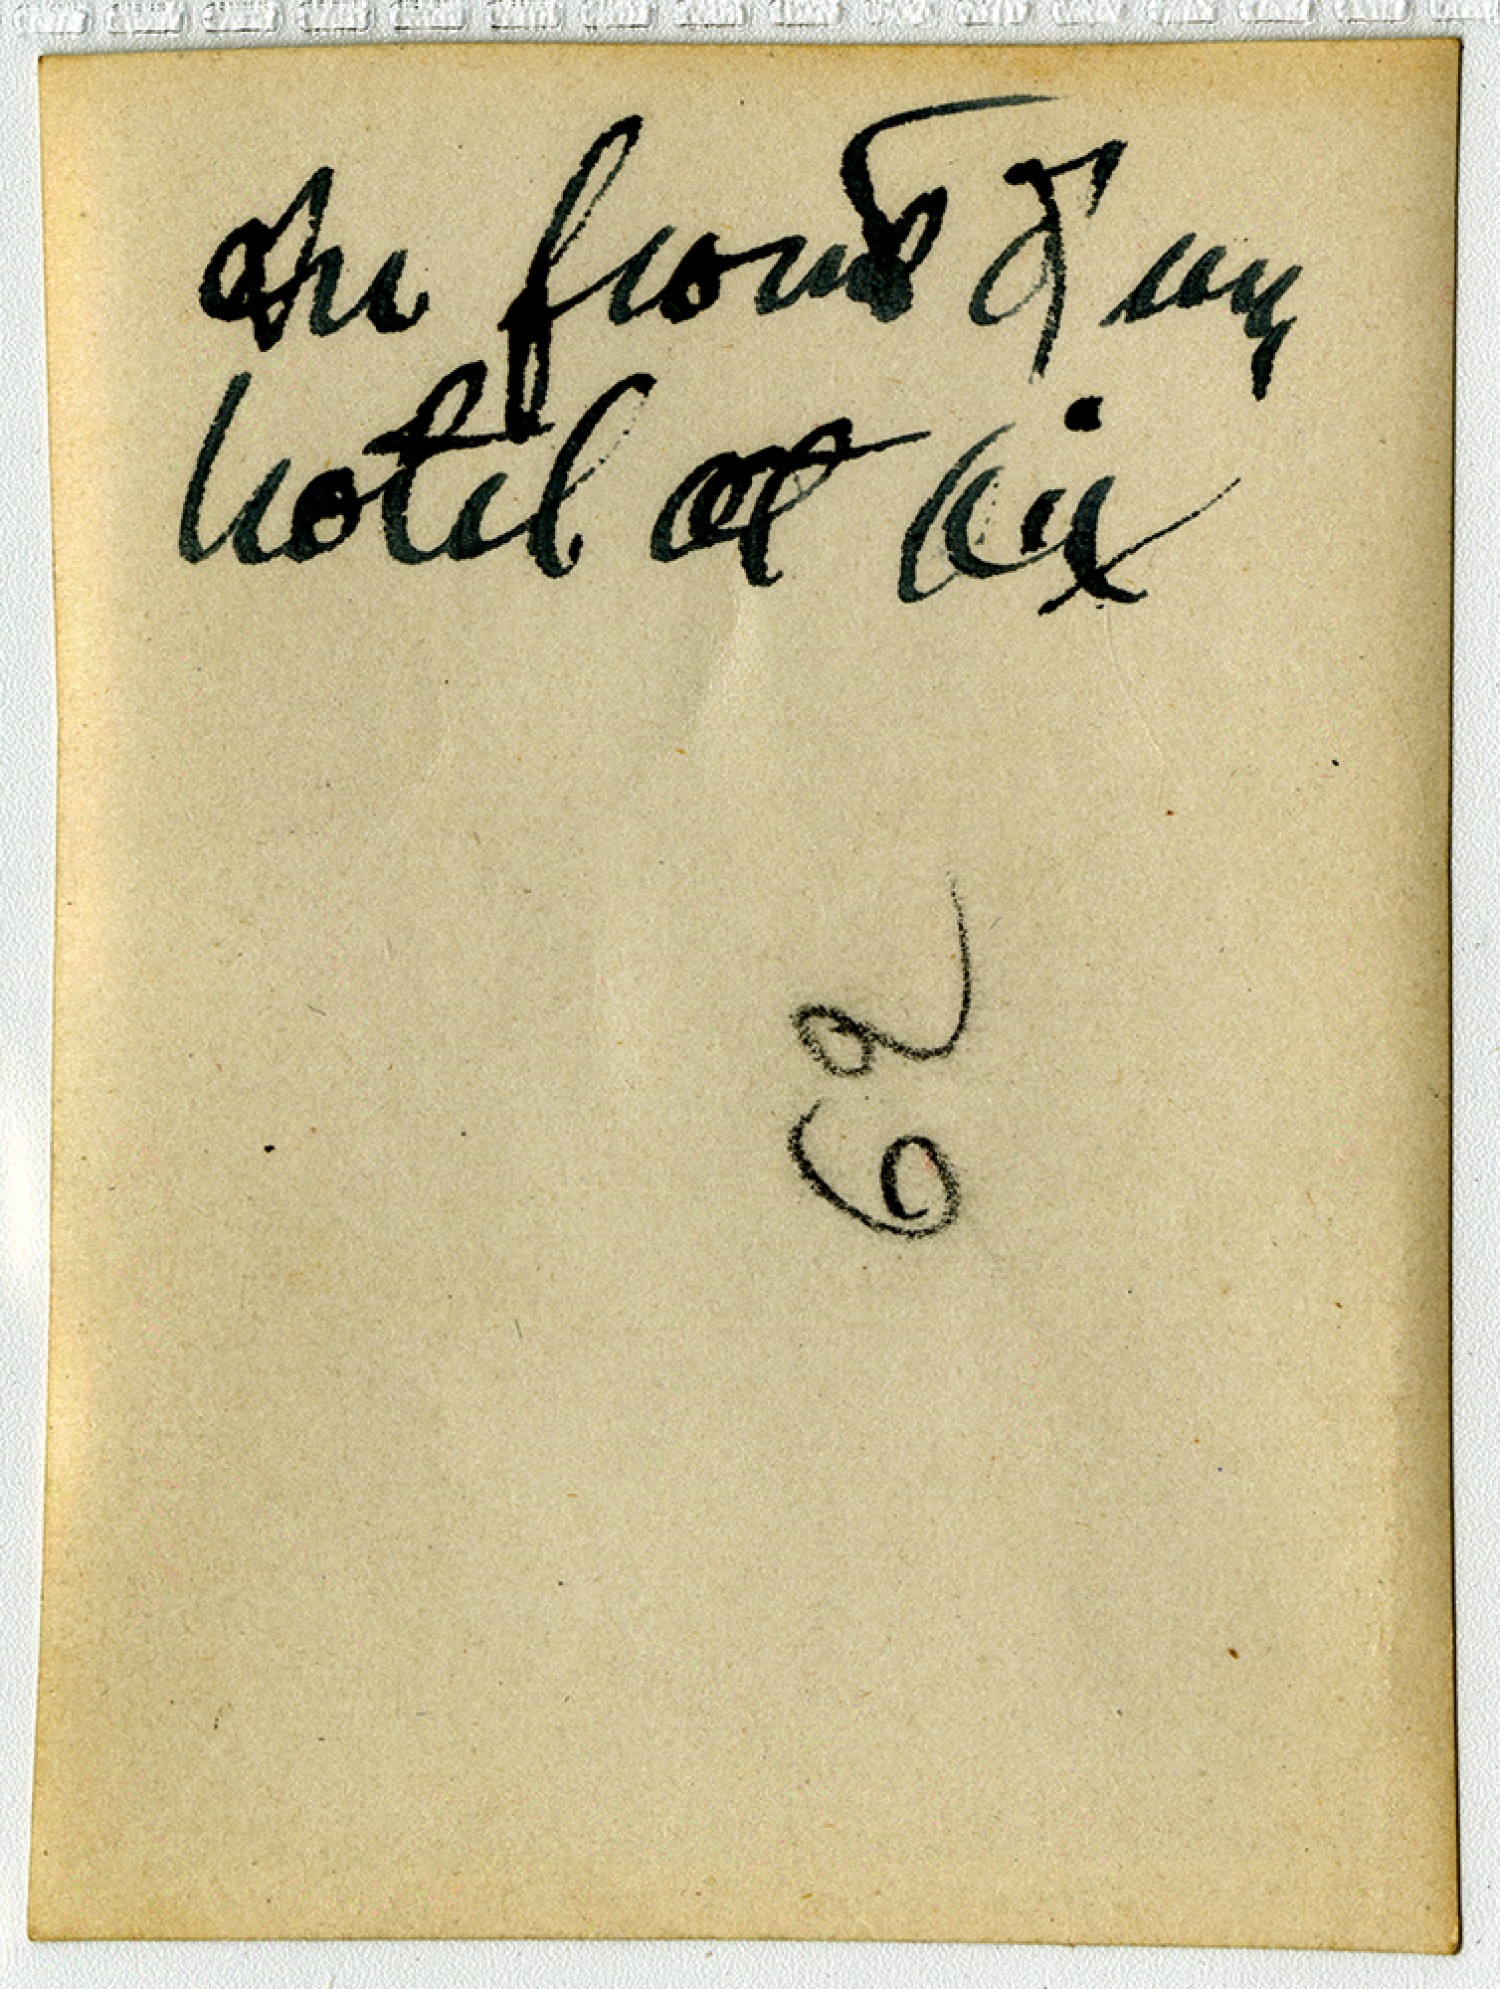 In front of my
hotel at Aix
62